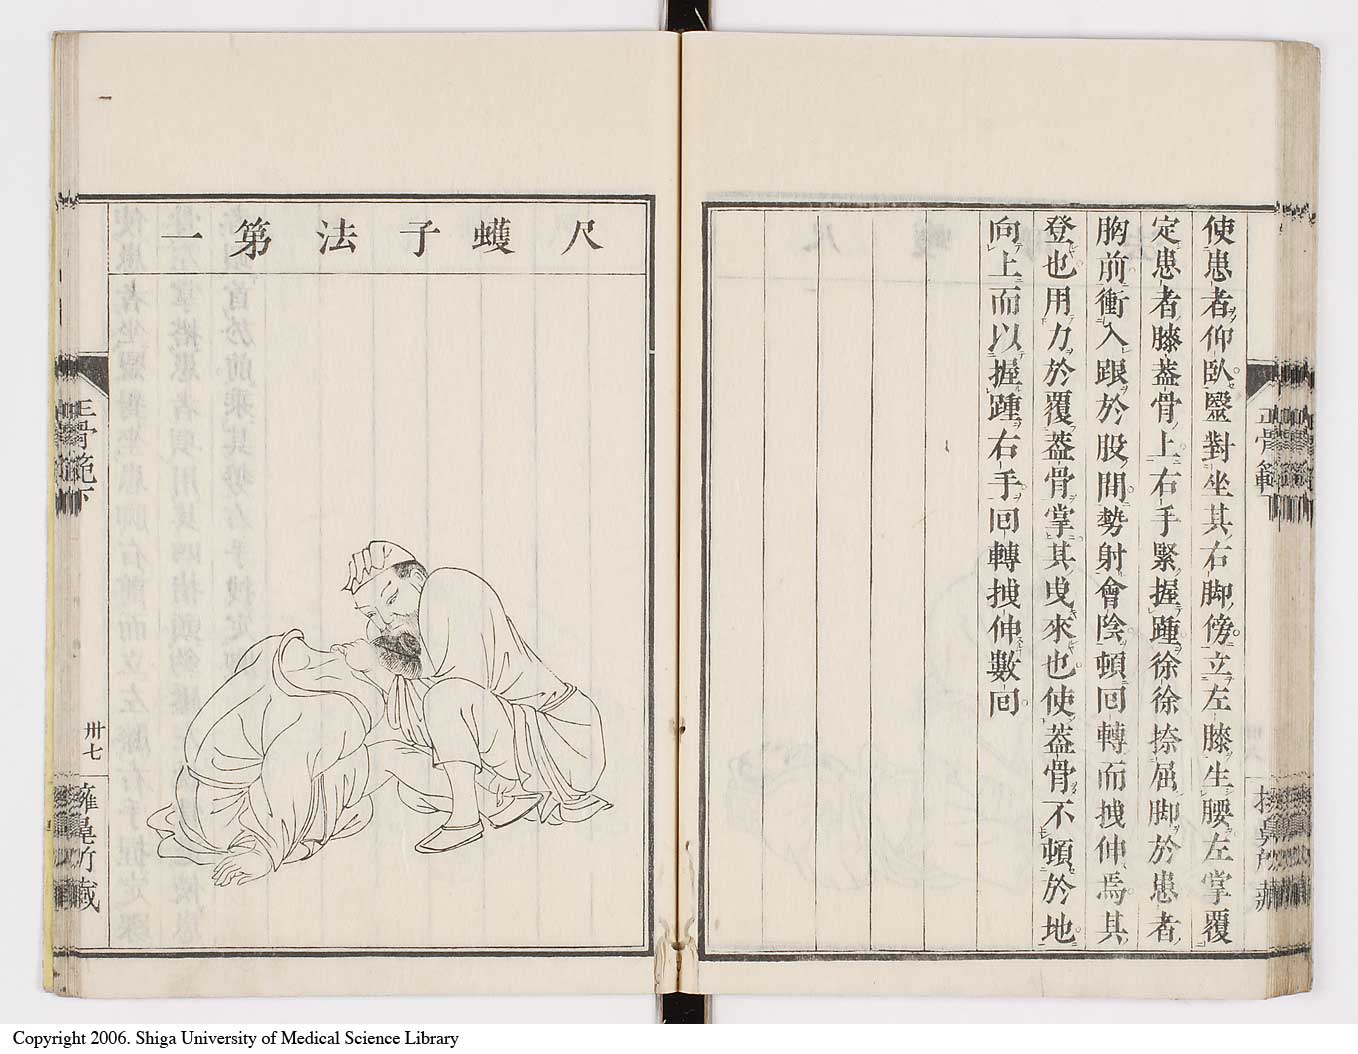 使患者仰臥毉對坐其右脚傍立左膝生腰左掌覆
定患者膝葢骨上右手緊握踵徐徐捺屈脚於患者
胸前衝入跟於股間勢射會陰頓回轉而拽伸焉其
登也用力於覆葢骨掌其曵來也使葢骨不頓於地
向上而以握踵右手回轉拽伸數回
正骨範下
尺蠖子法第一
正骨範下
卅七
擁鼻所藏
Copyright 2006. Shiga University of Medical Science Library